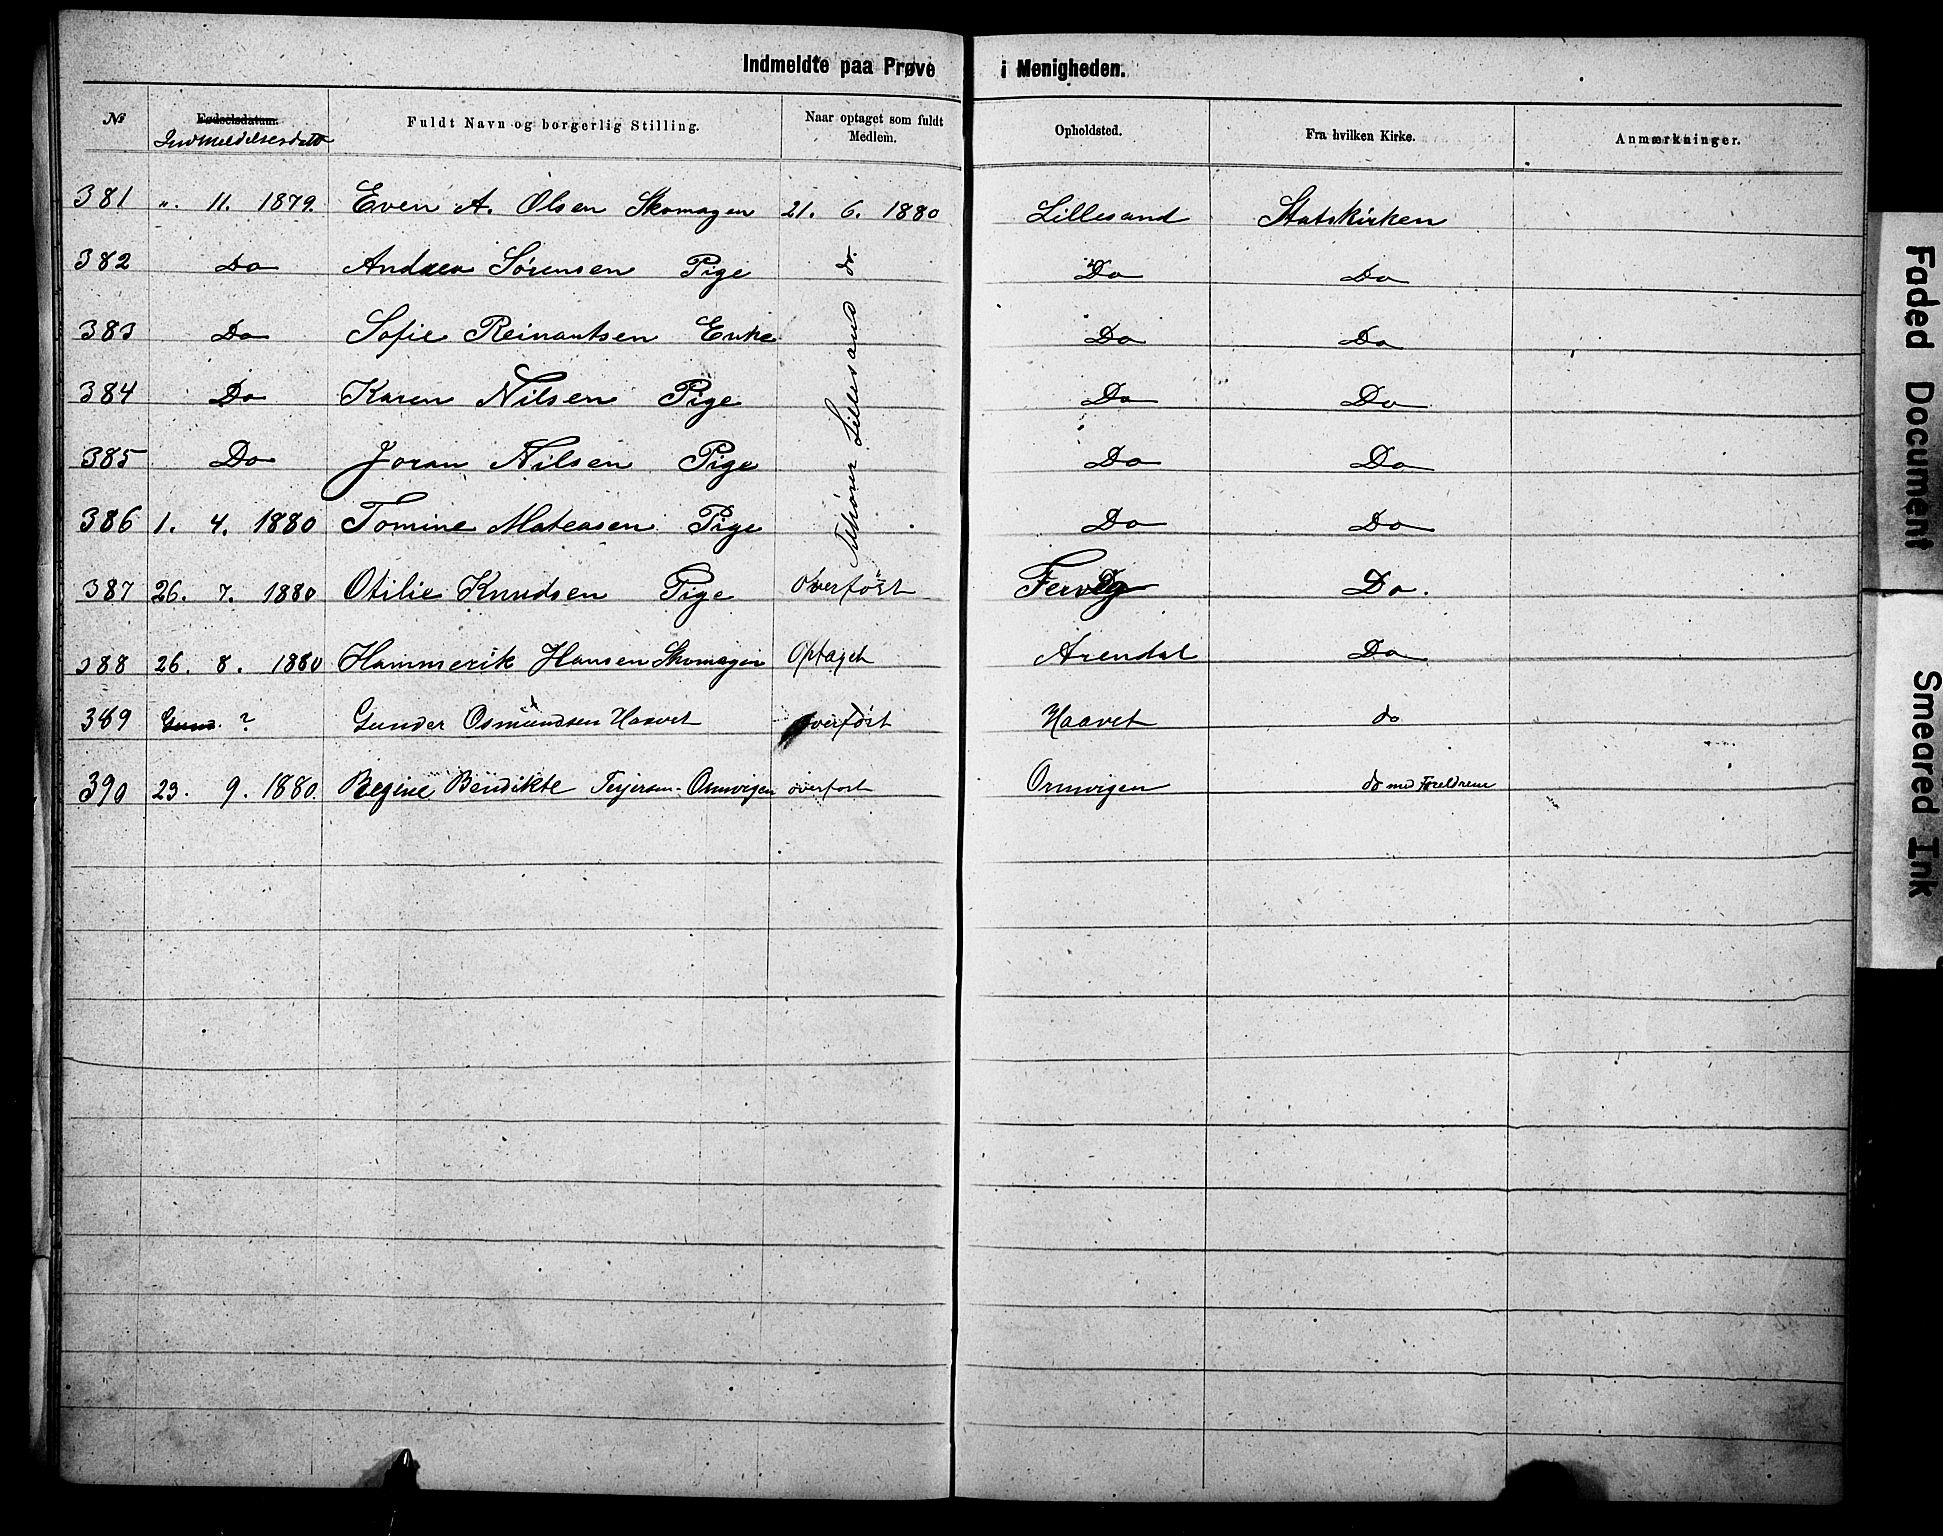 Indmeldte paa Prøve i Menigheden.
№ Fødselsdatum. Fuldt Navn og borgerlig Stilling. Naar optaget som fuldt Medlem. Opholdsted. Fra hvilken Kirke. Anmærkninger.
Indmeldelsesdato
381 ". 11. 1879. Even A. Olsen Skomager 21. 6. 1880 Lillesand Statskirken
382 Do Andrea Sörensen Pige do. Do Do
383 Do Sofie Reinartsen Enke Do Do
384 Do Karen Nilsen Pige Do Do
385 Do Joran Nilsen Pige Do Do
386 1. 4. 1880 Tomine Mateasen Pige Do Do
Lillesand
387 26. 7. 1880 Otilie Knudsen Pige Overført Do.
388 26. 8. 1880 Hammerik Hansen Skomager Optaget Arendal Do
389 Gund. ? Gunder Osmundsen Haavet overført Haavet do
390 23. 9. 1880. Regine Bendikte Terjersen Ormvigen overfort Ormvigen do med Foreldrene
Faded Document
Smeared Ink